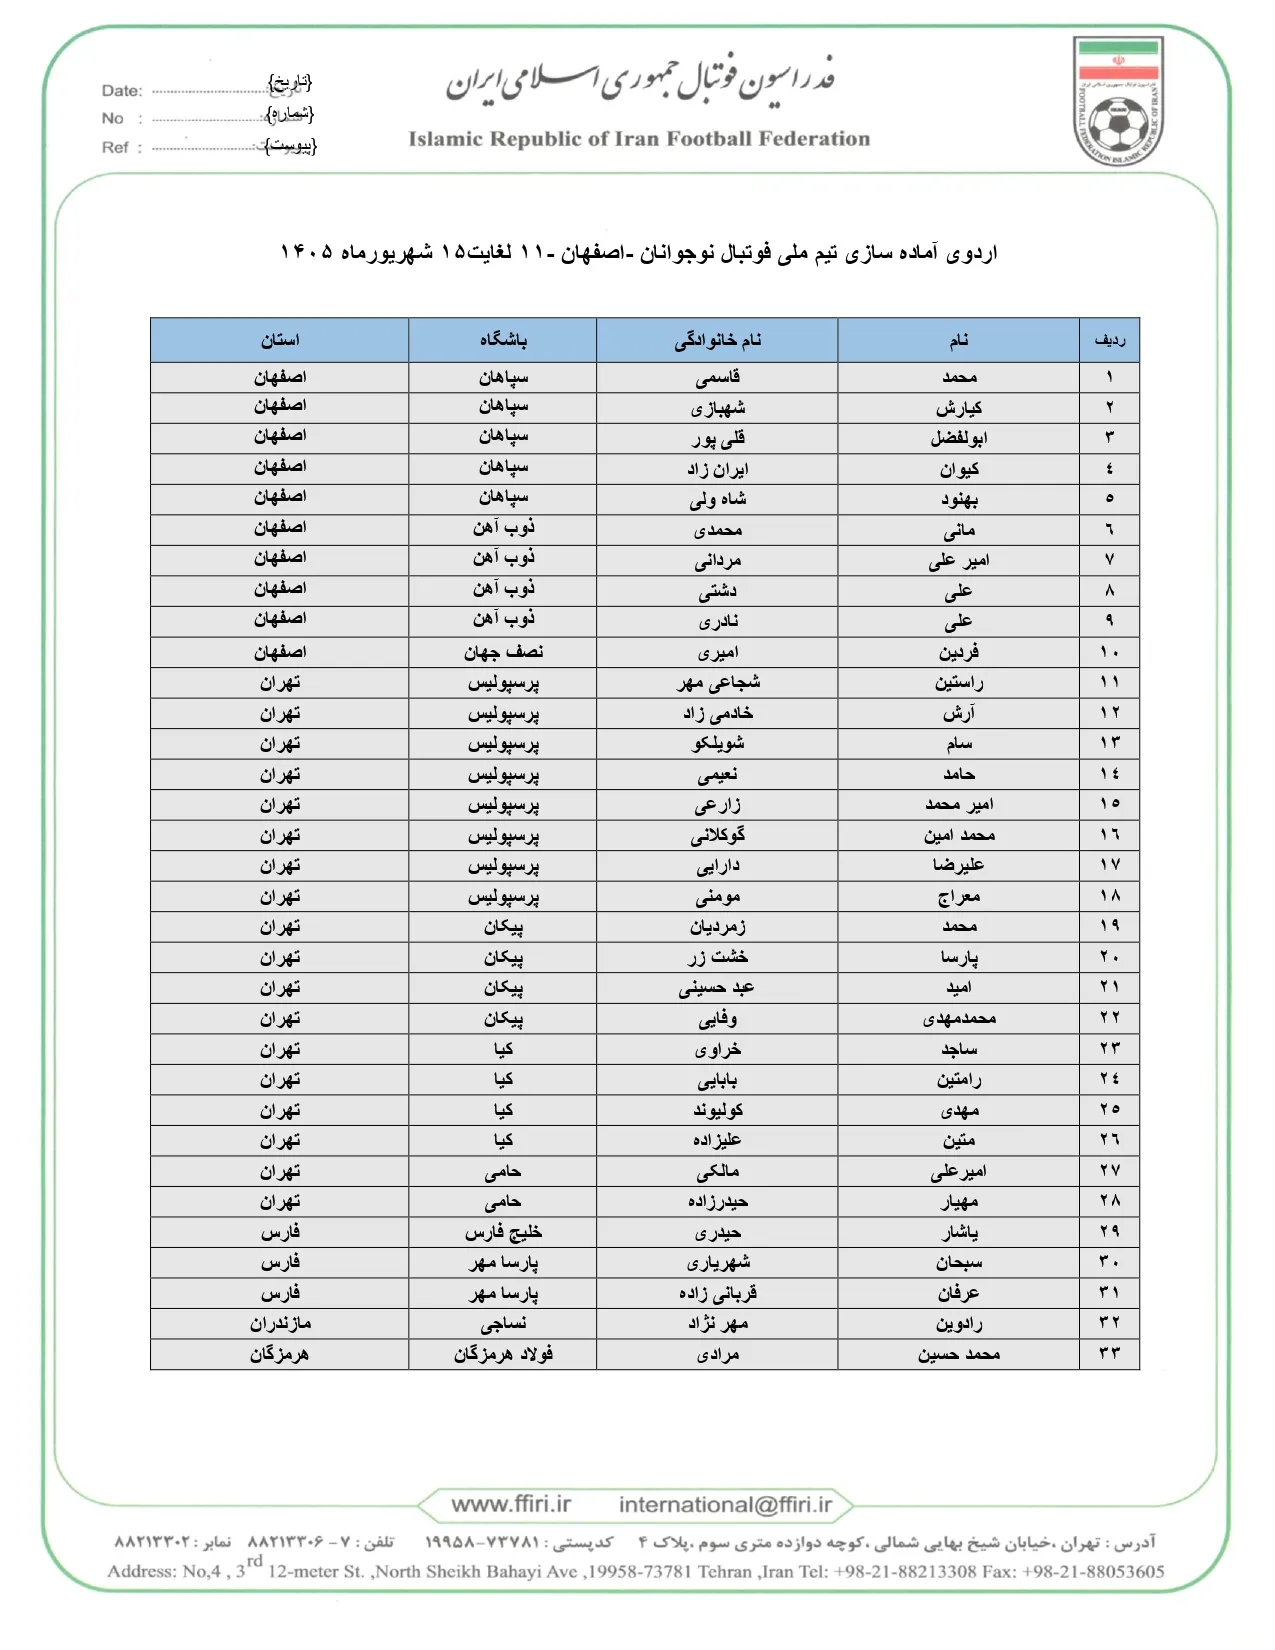 فدراسیون فوتبال جمهوری اسلامی ایران
Islamic Republic of Iran Football Federation
Date: {تاریخ}
No : {شماره}
Ref : {پیوست}
FOOTBALL FEDERATION ISLAMIC REPUBLIC OF IRAN
اردوی آماده سازی تیم ملی فوتبال نوجوانان -اصفهان -۱۱ لغایت۱۵ شهریورماه ۱۴۰۵
ردیف نام نام خانوادگی باشگاه استان
۱ محمد قاسمی سپاهان اصفهان
۲ کیارش شهبازی سپاهان اصفهان
۳ ابولفضل قلی پور سپاهان اصفهان
٤ کیوان ایران زاد سپاهان اصفهان
٥ بهنود شاه ولی سپاهان اصفهان
٦ مانی محمدی ذوب آهن اصفهان
۷ امیر علی مردانی ذوب آهن اصفهان
۸ علی دشتی ذوب آهن اصفهان
۹ علی نادری ذوب آهن اصفهان
۱۰ فردین امیری نصف جهان اصفهان
۱۱ راستین شجاعی مهر پرسپولیس تهران
۱۲ آرش خادمی زاد پرسپولیس تهران
۱۳ سام شویلکو پرسپولیس تهران
۱٤ حامد نعیمی پرسپولیس تهران
۱٥ امیر محمد زارعی پرسپولیس تهران
۱٦ محمد امین گوکلانی پرسپولیس تهران
۱۷ علیرضا دارایی پرسپولیس تهران
۱۸ معراج مومنی پرسپولیس تهران
۱۹ محمد زمردیان پیکان تهران
۲۰ پارسا خشت زر پیکان تهران
۲۱ امید عبد حسینی پیکان تهران
۲۲ محمدمهدی وفایی پیکان تهران
۲۳ ساجد خراوی کیا تهران
۲٤ رامتین بابایی کیا تهران
۲٥ مهدی کولیوند کیا تهران
۲٦ متین علیزاده کیا تهران
۲۷ امیرعلی مالکی حامی تهران
۲۸ مهیار حیدرزاده حامی تهران
۲۹ یاشار حیدری خلیج فارس فارس
۳۰ سبحان شهریاری پارسا مهر فارس
۳۱ عرفان قربانی زاده پارسا مهر فارس
۳۲ رادوین مهر نژاد نساجی مازندران
۳۳ محمد حسین مرادی فولاد هرمزگان هرمزگان
www.ffiri.ir international@ffiri.ir
آدرس : تهران ،خیابان شیخ بهایی شمالی ،کوچه دوازده متری سوم ،پلاک ۴ کدپستی : ۷۳۷۸۱-۱۹۹۵۸ تلفن : ۷ - ۸۸۲۱۳۳۰۶ نمابر : ۸۸۲۱۳۳۰۲
Address: No,4 , 3rd 12-meter St. ,North Sheikh Bahayi Ave ,19958-73781 Tehran ,Iran Tel: +98-21-88213308 Fax: +98-21-88053605